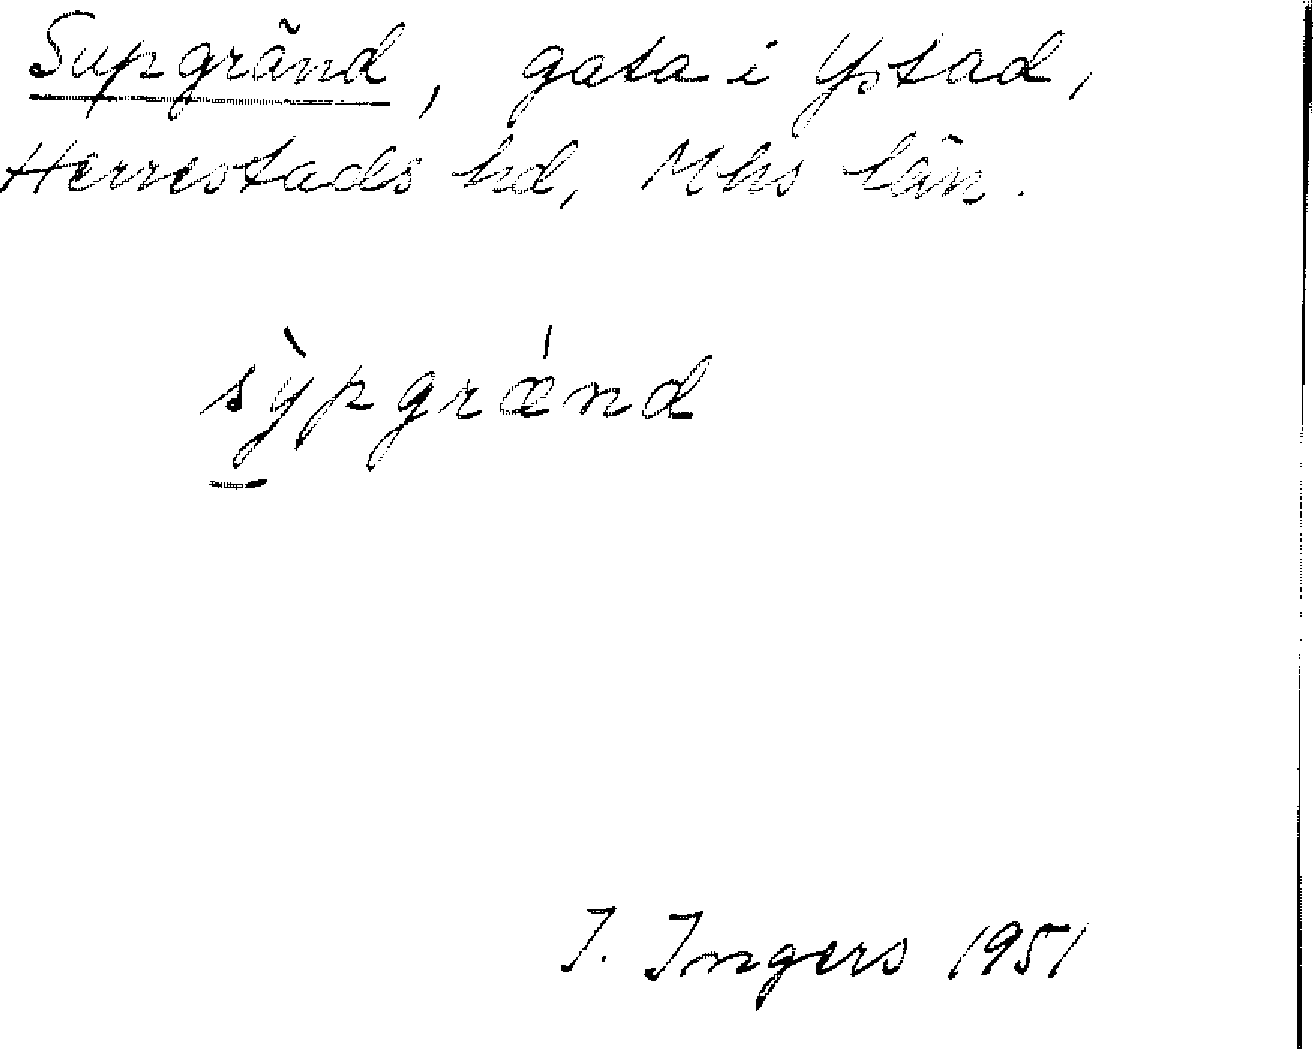 Supgränd, gata i Ystad,
Herrestads hd, Mhs län.
sỳpgrǽnd
I. Ingers 1951